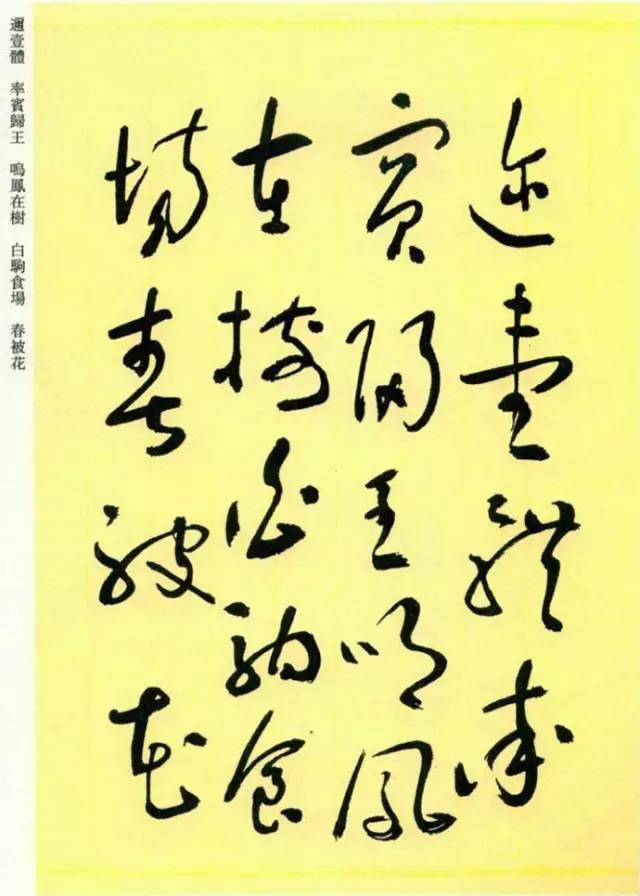 迩壹體率
賓歸王鳴鳳
在樹白駒食
場春被花
邇壹體　率賓歸王　嗚鳳在樹　白駒食場　春被花